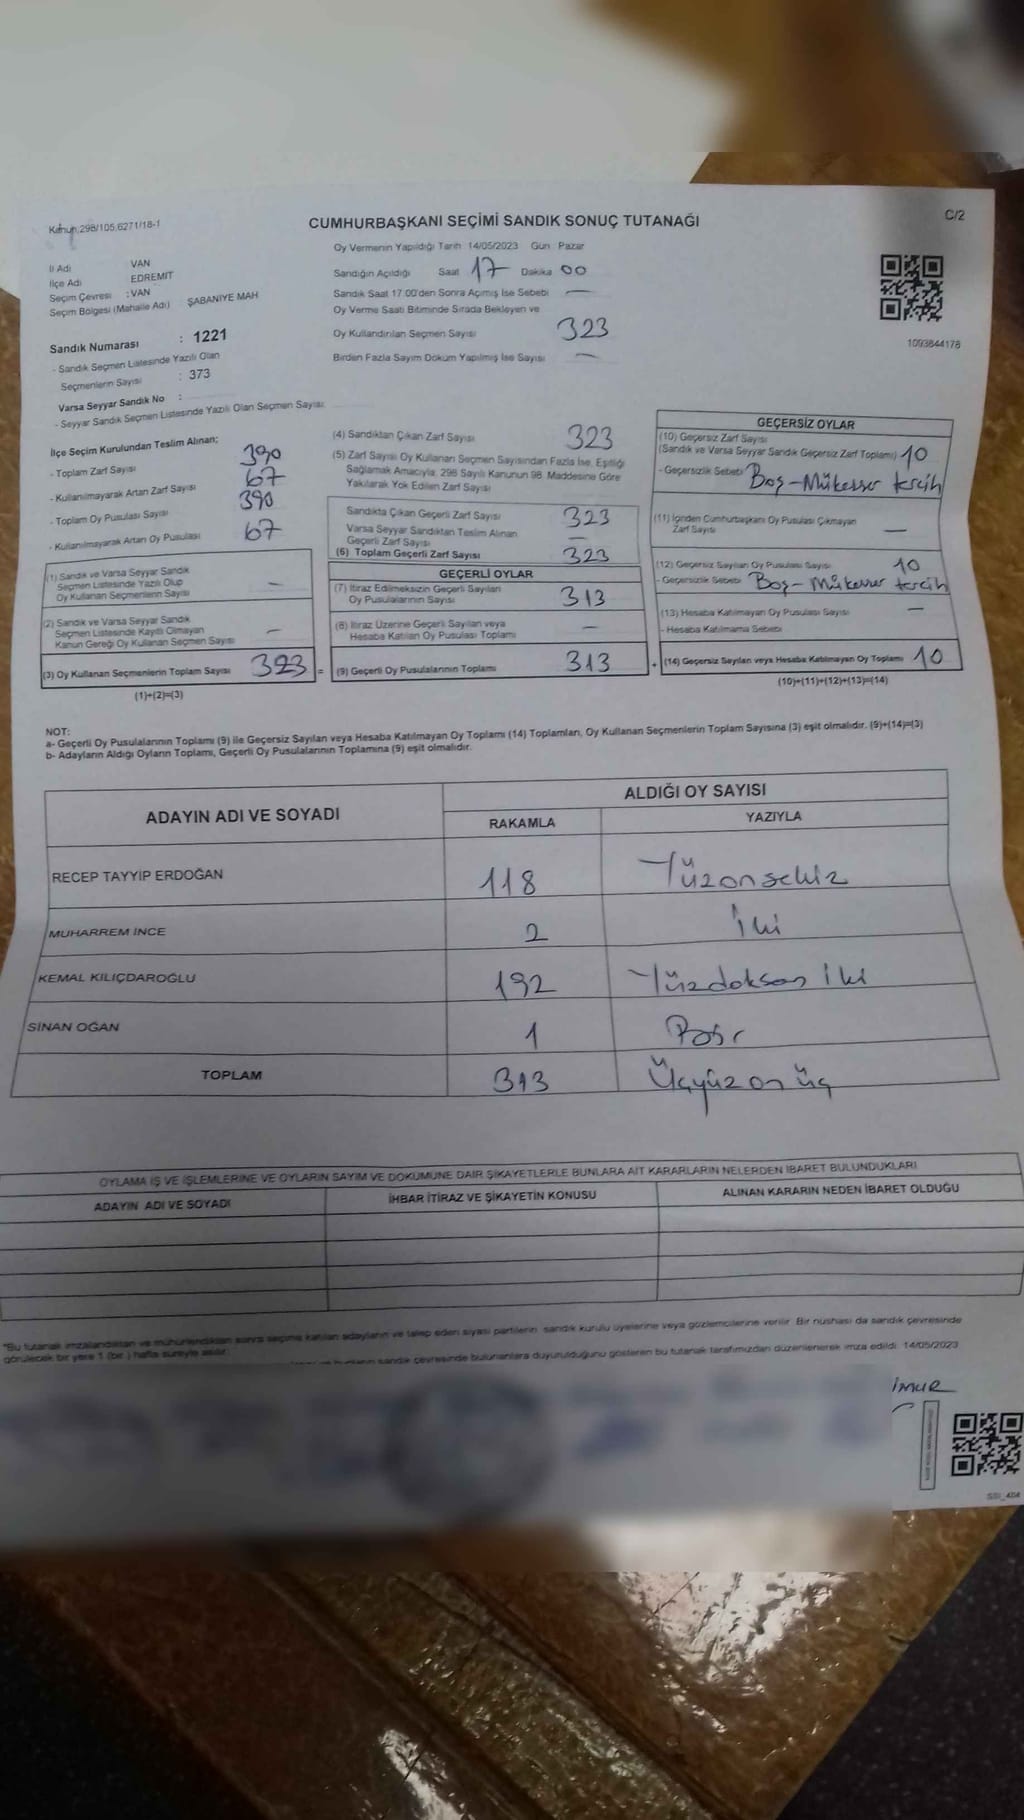 Kanun, 298/105,6271/18-1
C/2
CUMHURBAŞKANI SEÇİMİ SANDIK SONUÇ TUTANAĞI
Oy Vermenin Yapıldığı Tarih 14/05/2023 Gün Pazar
İl Adı VAN
İlçe Adı EDREMİT
Seçim Çevresi : VAN
Seçim Bölgesi (Mahalle Adı) ŞABANİYE MAH
Sandık Numarası : 1221
- Sandık Seçmen Listesinde Yazılı Olan
Seçmenlerin Sayısı : 373
Varsa Seyyar Sandık No :
- Seyyar Sandık Seçmen Listesinde Yazılı Olan Seçmen Sayısı
Sandığın Açıldığı Saat 17 Dakika 00
Sandık Saat 17.00'den Sonra Açımış İse Sebebi —
Oy Verme Saati Bitiminde Sırada Bekleyen ve
Oy Kullandırılan Seçmen Sayısı 323
Birden Fazla Sayım Döküm Yapılmış İse Sayısı —
1093844178
İlçe Seçim Kurulundan Teslim Alınan;
- Toplam Zarf Sayısı 390
- Kullanılmayarak Artan Zarf Sayısı 67
- Toplam Oy Pusulası Sayısı 390
- Kullanılmayarak Artan Oy Pusulası 67
(1) Sandık ve Varsa Seyyar Sandık
Seçmen Listesinde Yazılı Olup
Oy Kullanan Seçmenlerin Sayısı —
(2) Sandık ve Varsa Seyyar Sandık
Seçmen Listesinde Kayıtlı Olmayan
Kanun Gereği Oy Kullanan Seçmen Sayısı —
(3) Oy Kullanan Seçmenlerin Toplam Sayısı 323 =
(1)+(2)=(3)
(4) Sandıktan Çıkan Zarf Sayısı 323
(5) Zarf Sayısı Oy Kullanan Seçmen Sayısından Fazla İse, Eşitliği
Sağlamak Amacıyla, 298 Sayılı Kanunun 98. Maddesine Göre
Yakılarak Yok Edilen Zarf Sayısı
Sandıkta Çıkan Geçerli Zarf Sayısı 323
Varsa Seyyar Sandıktan Teslim Alınan
Geçerli Zarf Sayısı —
(6) Toplam Geçerli Zarf Sayısı 323
GEÇERLİ OYLAR
(7) İtiraz Edilmeksizin Geçerli Sayılan
Oy Pusulalarının Sayısı 313
(8) İtiraz Üzerine Geçerli Sayılan veya
Hesaba Katılan Oy Pusulası Toplamı —
(9) Geçerli Oy Pusulalarının Toplamı 313 +
GEÇERSİZ OYLAR
(10) Geçersiz Zarf Sayısı
(Sandık ve Varsa Seyyar Sandık Geçersiz Zarf Toplamı) 10
- Geçersizlik Sebebi Boş-Mükerrer tercih
(11) İçinden Cumhurbaşkanı Oy Pusulası Çıkmayan
Zarf Sayısı —
(12) Geçersiz Sayılan Oy Pusulası Sayısı 10
- Geçersizlik Sebebi Boş-Mükerrer tercih
(13) Hesaba Katılmayan Oy Pusulası Sayısı —
- Hesaba Katılmama Sebebi
(14) Geçersiz Sayılan veya Hesaba Katılmayan Oy Toplamı 10
(10)+(11)+(12)+(13)=(14)
NOT:
a- Geçerli Oy Pusulalarının Toplamı (9) ile Geçersiz Sayılan veya Hesaba Katılmayan Oy Toplamı (14) Toplamları, Oy Kullanan Seçmenlerin Toplam Sayısına (3) eşit olmalıdır. (9)+(14)=(3)
b- Adayların Aldığı Oyların Toplamı, Geçerli Oy Pusulalarının Toplamına (9) eşit olmalıdır.
ADAYIN ADI VE SOYADI
ALDIĞI OY SAYISI
RAKAMLA YAZIYLA
RECEP TAYYİP ERDOĞAN 118 Yüzonsekiz
MUHARREM İNCE 2 İki
KEMAL KILIÇDAROĞLU 192 Yüzdoksan iki
SİNAN OĞAN 1 Bir
TOPLAM 313 Üçyüzon üç
OYLAMA İŞ VE İŞLEMLERİNE VE OYLARIN SAYIM VE DÖKÜMÜNE DAİR ŞİKAYETLERLE BUNLARA AİT KARARLARIN NELERDEN İBARET BULUNDUKLARI
ADAYIN ADI VE SOYADI İHBAR İTİRAZ VE ŞİKAYETİN KONUSU ALINAN KARARIN NEDEN İBARET OLDUĞU
*Bu tutanak imzalandıktan ve mühürlendikten sonra seçime katılan adayların ve talep eden siyasi partilerin sandık kurulu üyelerine veya gözlemcilerine verilir. Bir nüshası da sandık çevresinde
görülecek bir yere 1 (bir) hafta süreyle asılır.
sandık çevresinde bulunanlara duyurulduğunu gösteren bu tutanak tarafımızdan düzenlenerek imza edildi. 14/05/2023